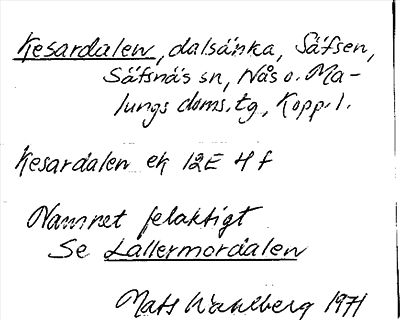 Kesardalen, dalsänka, Säfsen,
Säfsnäs sn, Nås o. Ma-
lungs doms.tg., Kopp. l.
Kesardalen ek 12E 4 f
Namnet felaktigt
Se Lallermordalen
Mats Wahlberg 1971